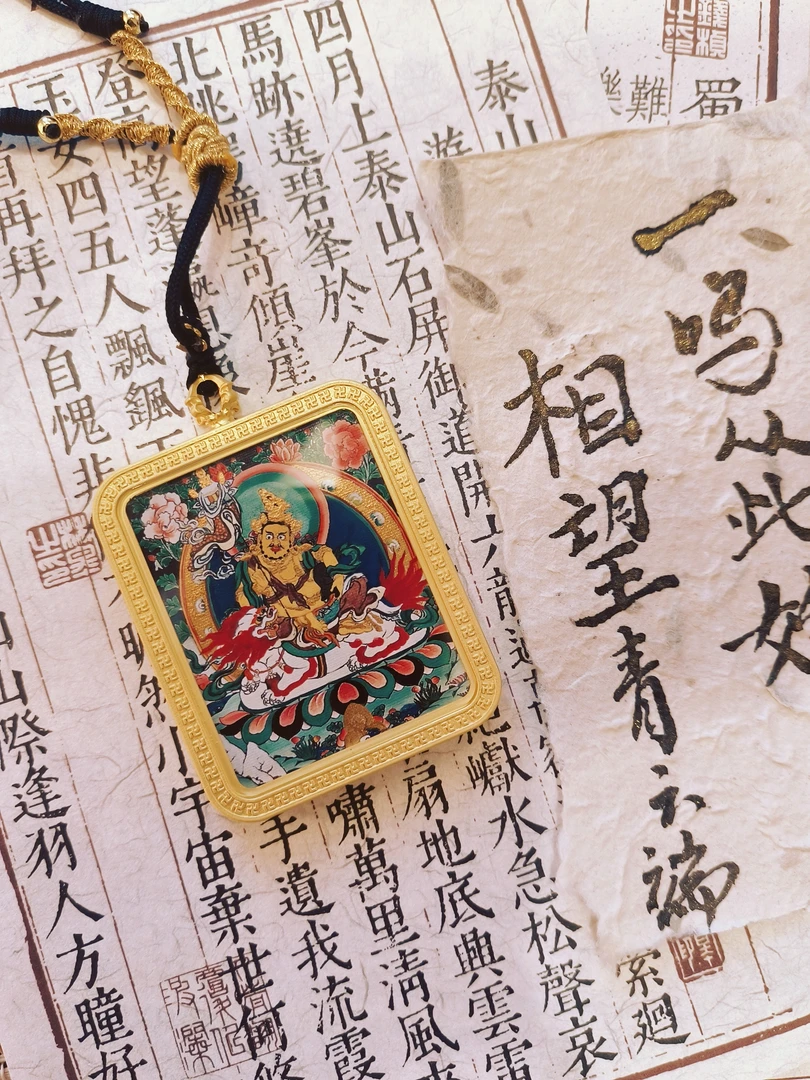 蜀
難
泰山
一鸣从此始
相望青云端
四月上泰山石屏御道開六龍過
馬跡遶碧峯於今滿
水急松聲哀
北眺
嶂奇傾崖
扇地底興雲雷
登高望蓬瀛
嘯萬里清風來
玉女四五人飄颻下
手遺我流霞
首再拜之自愧非
小宇宙棄世何悠
山際逢羽人方瞳好
索迴